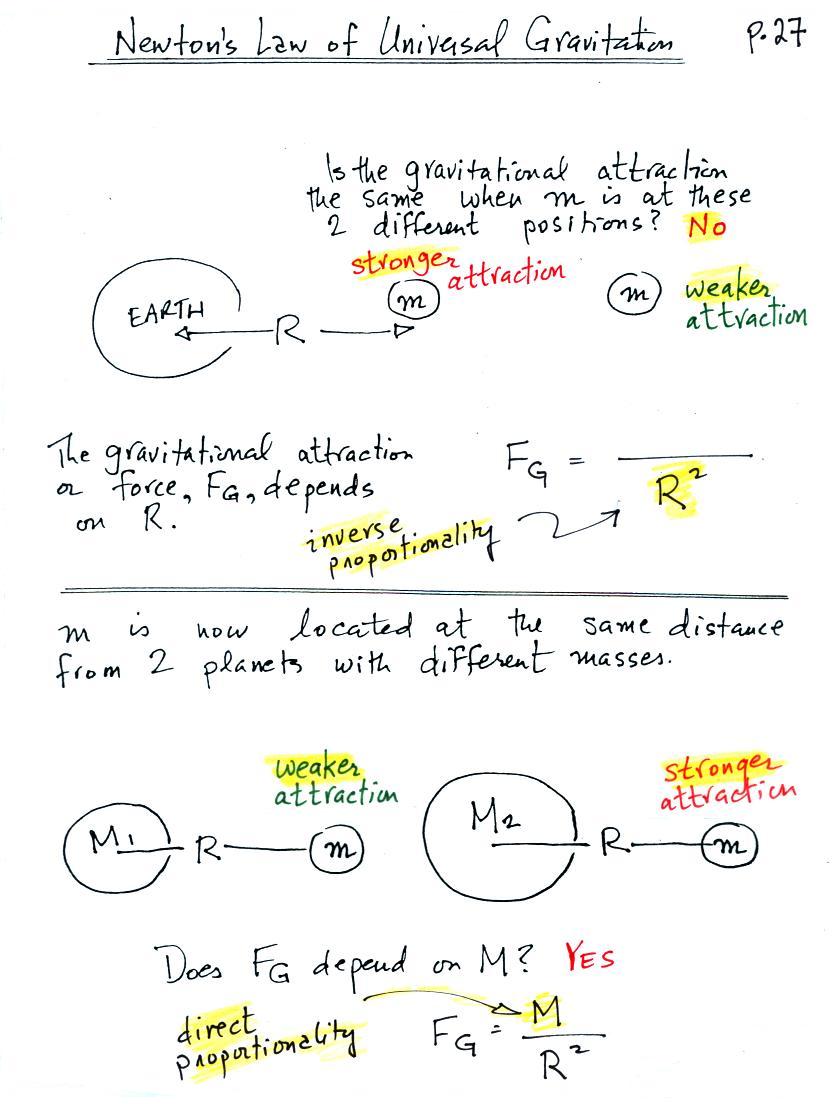 Newton's Law of Universal Gravitation
p. 27
Is the gravitational attraction
the same when m is at these
2 different positions? No
stronger
attraction
EARTH
R
m
m
weaker
attraction
The gravitational attraction
or force, FG, depends
on R.
FG = 
R²
inverse
proportionality
m is now located at the same distance
from 2 planets with different masses.
weaker
attraction
stronger
attraction
M1
R
m
M2
R
m
Does FG depend on M? YES
direct
proportionality
FG = M
R²